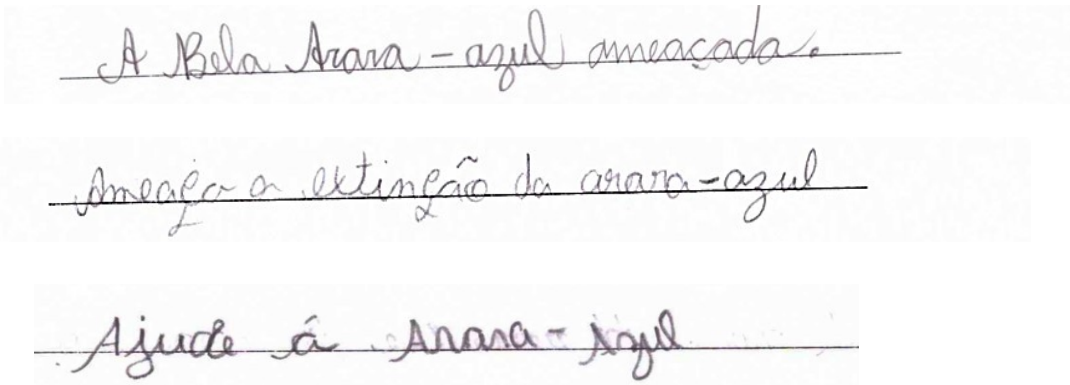 A Bela Arara-azul ameaçada.
Ameaça a extinção da arara-azul
Ajude á Arara-Azul